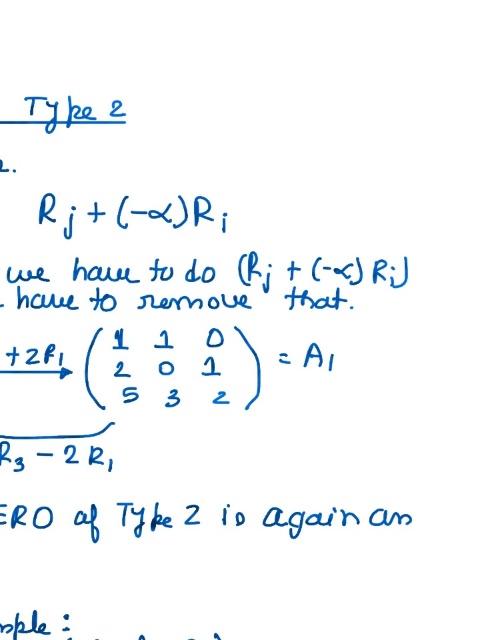 Type 2
2.
Rj + (-α)Ri
we have to do (Rj + (-α) Ri)
have to remove that.
+2R1 ( 1 1 0
2 0 1 = A1
5 3 2 )
R3 - 2R1
ERO of Type 2 is again an
mple :